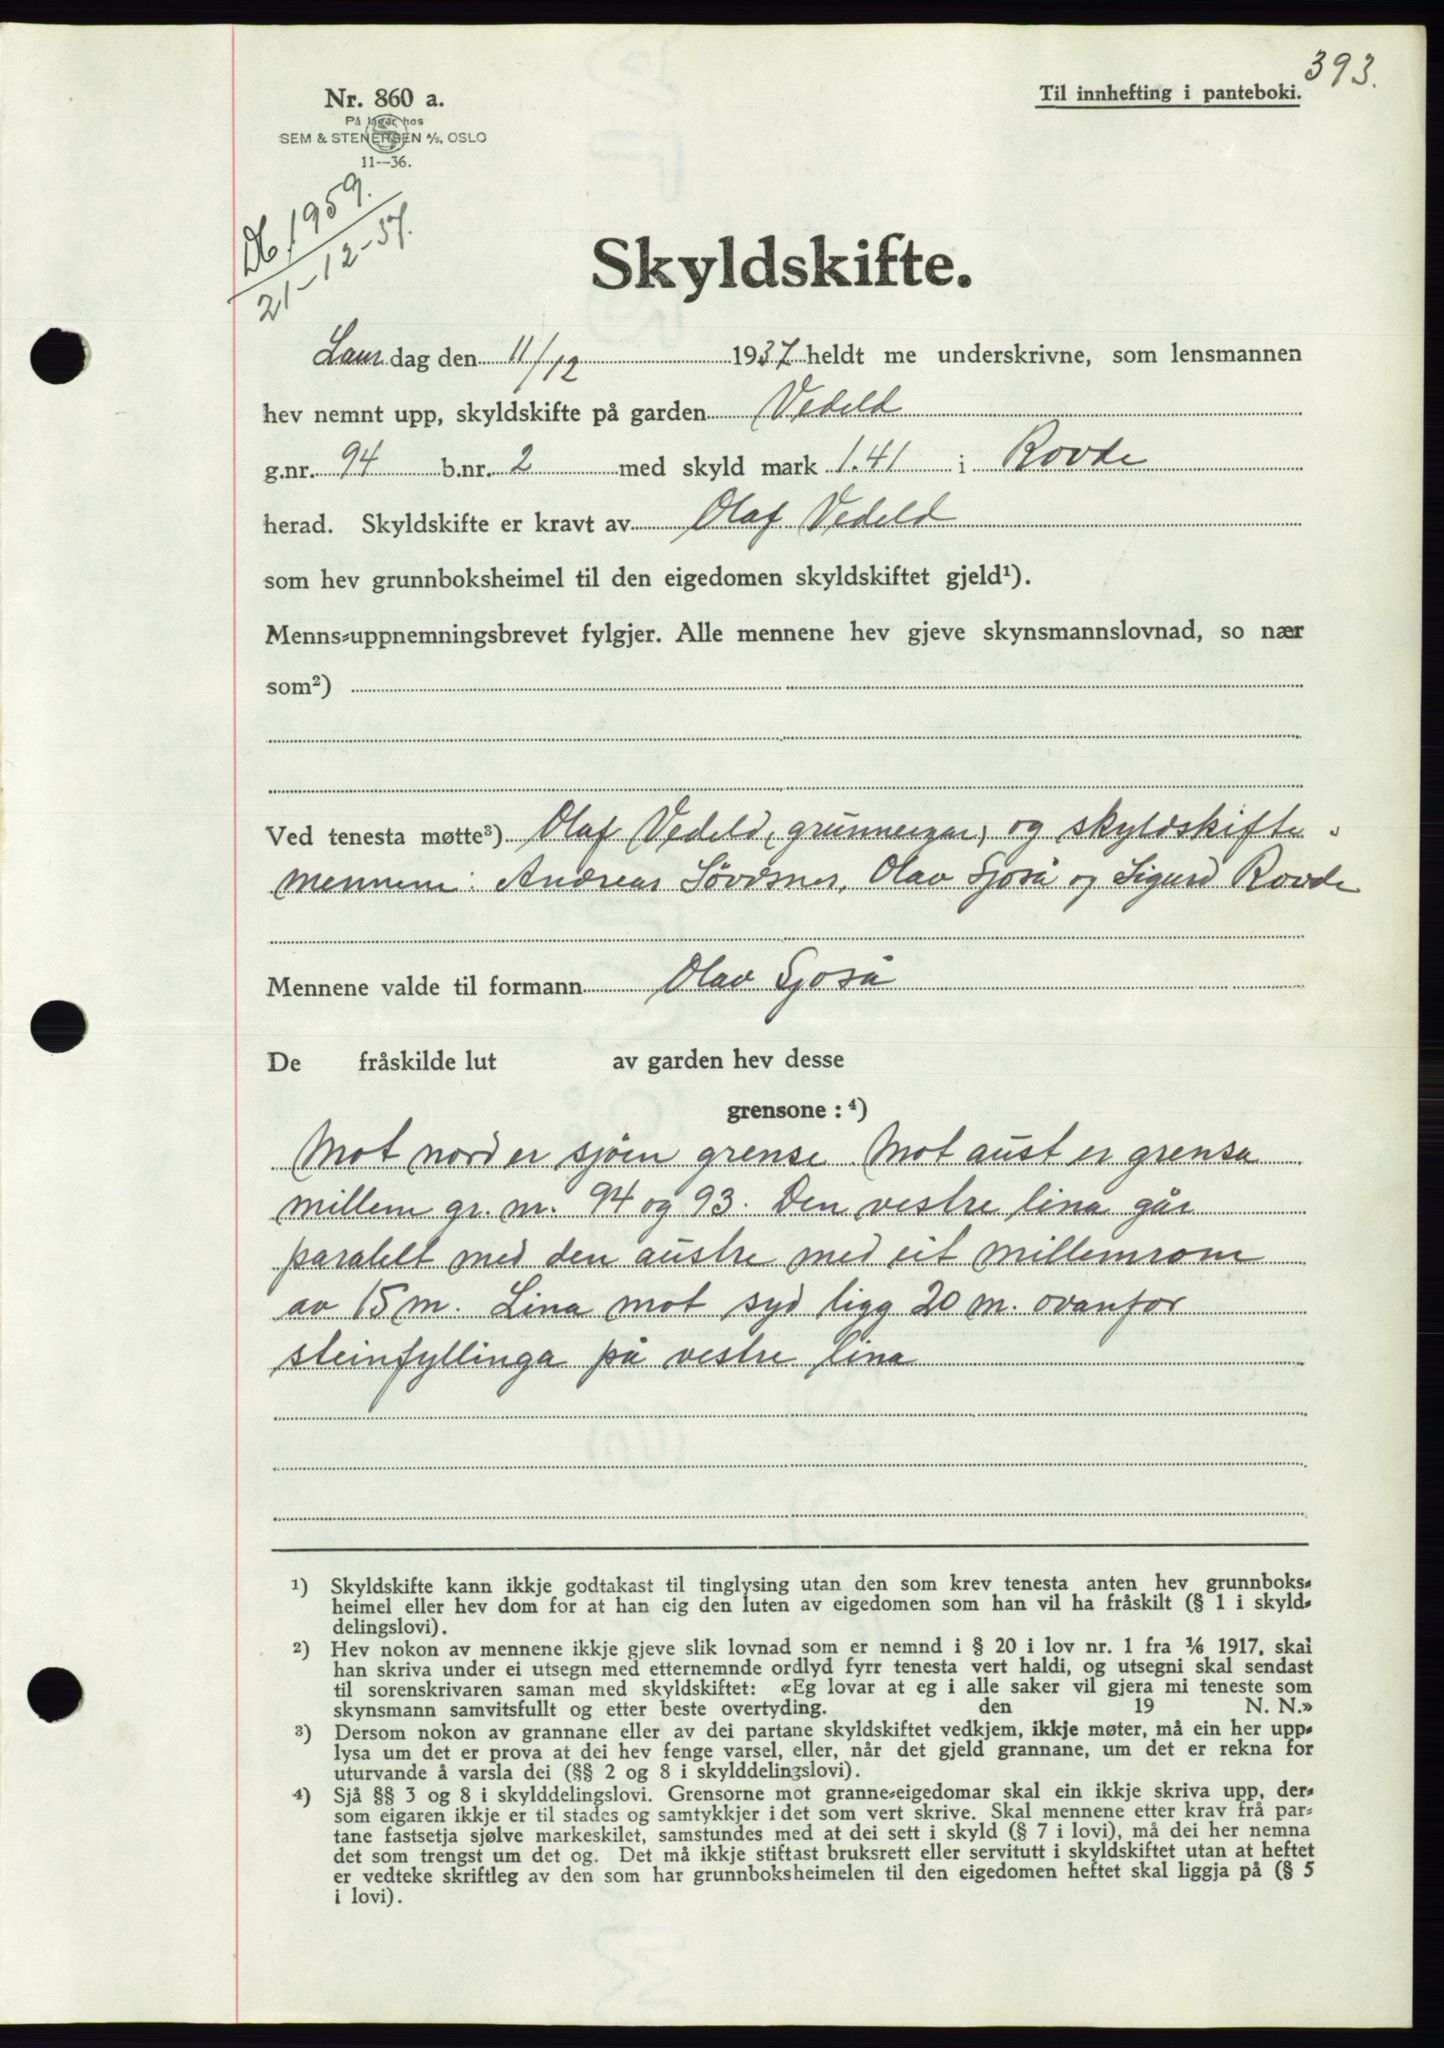 393.
Nr. 860 a.
Til innhefting i panteboki.
På lager hos
SEM & STENERSEN A/S, OSLO
11—36.
Db. 1959.
21-12-37.
Skyldskifte.
Laurdag den 11/12 1937 heldt me underskrivne, som lensmannen
hev nemnt upp, skyldskifte på garden Vedeld
g.nr. 94 b.nr. 2 med skyld mark 1.41 i Rovde
herad. Skyldskifte er kravt av Olaf Vedeld
som hev grunnboksheimel til den eigedomen skyldskiftet gjeld¹).
Menns-uppnemningsbrevet fylgjer. Alle mennene hev gjeve skynsmannslovnad, so nær
som²)
Ved tenesta møtte³) Olaf Vedeld, grunneigar, og skyldskifte-
mennene: Andreas Sövdsnes, Olav Sjoså og Sigurd Rovde
Mennene valde til formann Olav Sjoså
De fråskilde lut av garden hev desse
grensone : ⁴)
Mot nord er sjöen grense. Mot aust er grensa
millem gr. nr. 94 og 93. Den vestre lina går
paralelt med den austre med eit millemrom
av 15 m. Lina mot syd ligg 20 m. ovanfor
steinfyllinga på vestre lina
¹) Skyldskifte kann ikkje godtakast til tinglysing utan den som krev tenesta anten hev grunnboks-
heimel eller hev dom for at han eig den luten av eigedomen som han vil ha fråskilt (§ 1 i skyld-
delingslovi).
²) Hev nokon av mennene ikkje gjeve slik lovnad som er nemnd i § 20 i lov nr. 1 fra 1/6 1917, skal
han skriva under ei utsegn med etternemnde ordlyd fyrr tenesta vert haldi, og utsegni skal sendast
til sorenskrivaren saman med skyldskiftet: «Eg lovar at eg i alle saker vil gjera mi teneste som
skynsmann samvitsfullt og etter beste overtyding. den 19 N. N.»
³) Dersom nokon av grannane eller av dei partane skyldskiftet vedkjem, ikkje møter, må ein her upp-
lysa um det er prova at dei hev fenge varsel, eller, når det gjeld grannane, um det er rekna for
uturvande å varsla dei (§§ 2 og 8 i skylddelingslovi).
⁴) Sjå §§ 3 og 8 i skylddelingslovi. Grensorne mot granne-eigedomar skal ein ikkje skriva upp, der-
som eigaren ikkje er til stades og samtykkjer i det som vert skrive. Skal mennene etter krav frå par-
tane fastsetja sjølve markeskilet, samstundes med at dei sett i skyld (§ 7 i lovi), må dei her nemna
det som trengst um det og. Det må ikkje stiftast bruksrett eller servitutt i skyldskiftet utan at heftet
er vedteke skriftleg av den som har grunnboksheimelen til den eigedomen heftet skal liggja på (§ 5
i lovi).